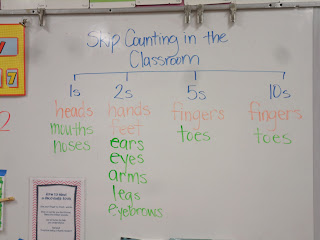 Skip Counting in the
Classroom
1s 2s 5s 10s
heads hands fingers fingers
mouths feet toes toes
noses ears
eyes
arms
legs
eyebrows
7
2